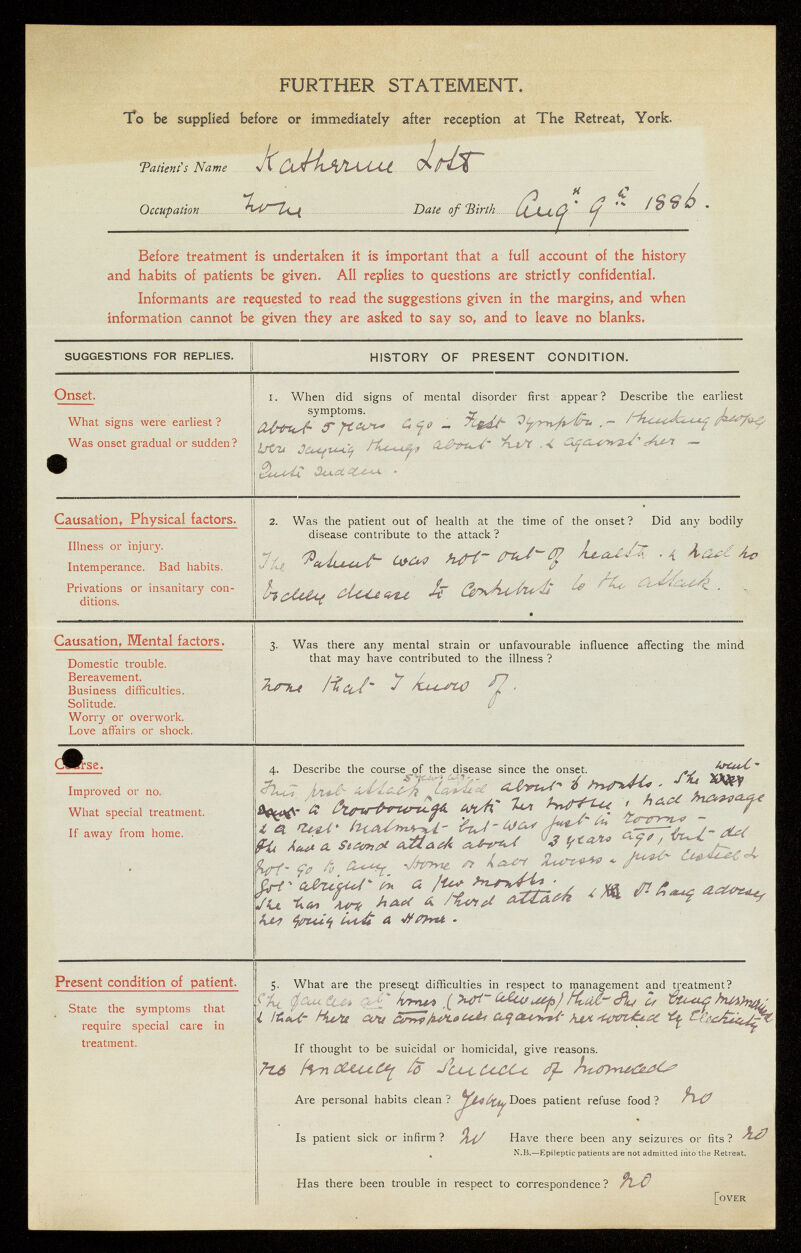 FURTHER STATEMENT.
To be supplied before or immediately after reception at The Retreat, York.
Patient's Name Katherine Lott
Occupation none Date of Birth Augst 9th 1886.
Before treatment is undertaken it is important that a full account of the history
and habits of patients be given. All replies to questions are strictly confidential.
Informants are requested to read the suggestions given in the margins, and when
information cannot be given they are asked to say so, and to leave no blanks.
SUGGESTIONS FOR REPLIES.
HISTORY OF PRESENT CONDITION.
Onset.
What signs were earliest?
Was onset gradual or sudden?
1. When did signs of mental disorder first appear? Describe the earliest
symptoms.
about 5 years ago - First Symptom. - thinking people
were saying things about her & against her -
Quite Sudden.
Causation, Physical factors.
Illness or injury.
Intemperance. Bad habits.
Privations or insanitary con-
ditions.
2. Was the patient out of health at the time of the onset? Did any bodily
disease contribute to the attack?
The Patient was not out of health. & had no
bodily disease to contribute to the attack.
Causation, Mental factors.
Domestic trouble.
Bereavement.
Business difficulties.
Solitude.
Worry or overwork.
Love affairs or shock.
3. Was there any mental strain or unfavourable influence affecting the mind
that may have contributed to the illness?
none that I know of.
Improved or no.
What special treatment.
If away from home.
4. Describe the course of the disease since the onset.
5 years ago
This first attack lasted about 6 months. She went
a Crowborough with her mother, had massage
& a rest treatment - but was just in rooms -
She had a second attack about 3 years ago, but did
not go to any Home or have nurses - just rested &
got alright in a few months.
She has now had a third attack & Dr Craig advises
her going into a Home.
Present condition of patient.
State the symptoms that
require special care in
treatment.
5. What are the present difficulties in respect to management and treatment?
She fancies at times (not always) that she is being mesmerised
& that there are conspiracies against her worked by Electricity
If thought to be suicidal or homicidal, give reasons.
no tendency to Suicide or homicide
Are personal habits clean? Yes Does patient refuse food? no
Is patient sick or infirm? no Have there been any seizures or fits? no
N.B.—Epileptic patients are not admitted into the Retreat.
Has there been trouble in respect to correspondence? no
[OVER